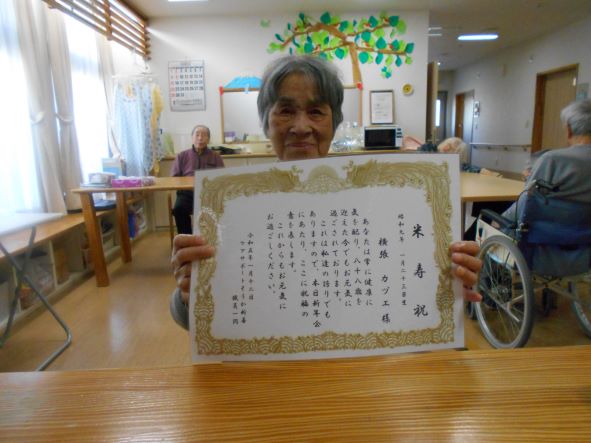 米寿祝
昭和九年 一月二十三日生
横張 カヅエ様
あなたは常に健康に
気を配り、八十八歳を
迎えた今でもお元気に
過ごされております。
これは私達の誇りでも
ありますので、本日新年会
にあたり、ここに祝福の
意を表します。
これからもお元気に
お過ごしください。
令和五年一月十二日
職員一同